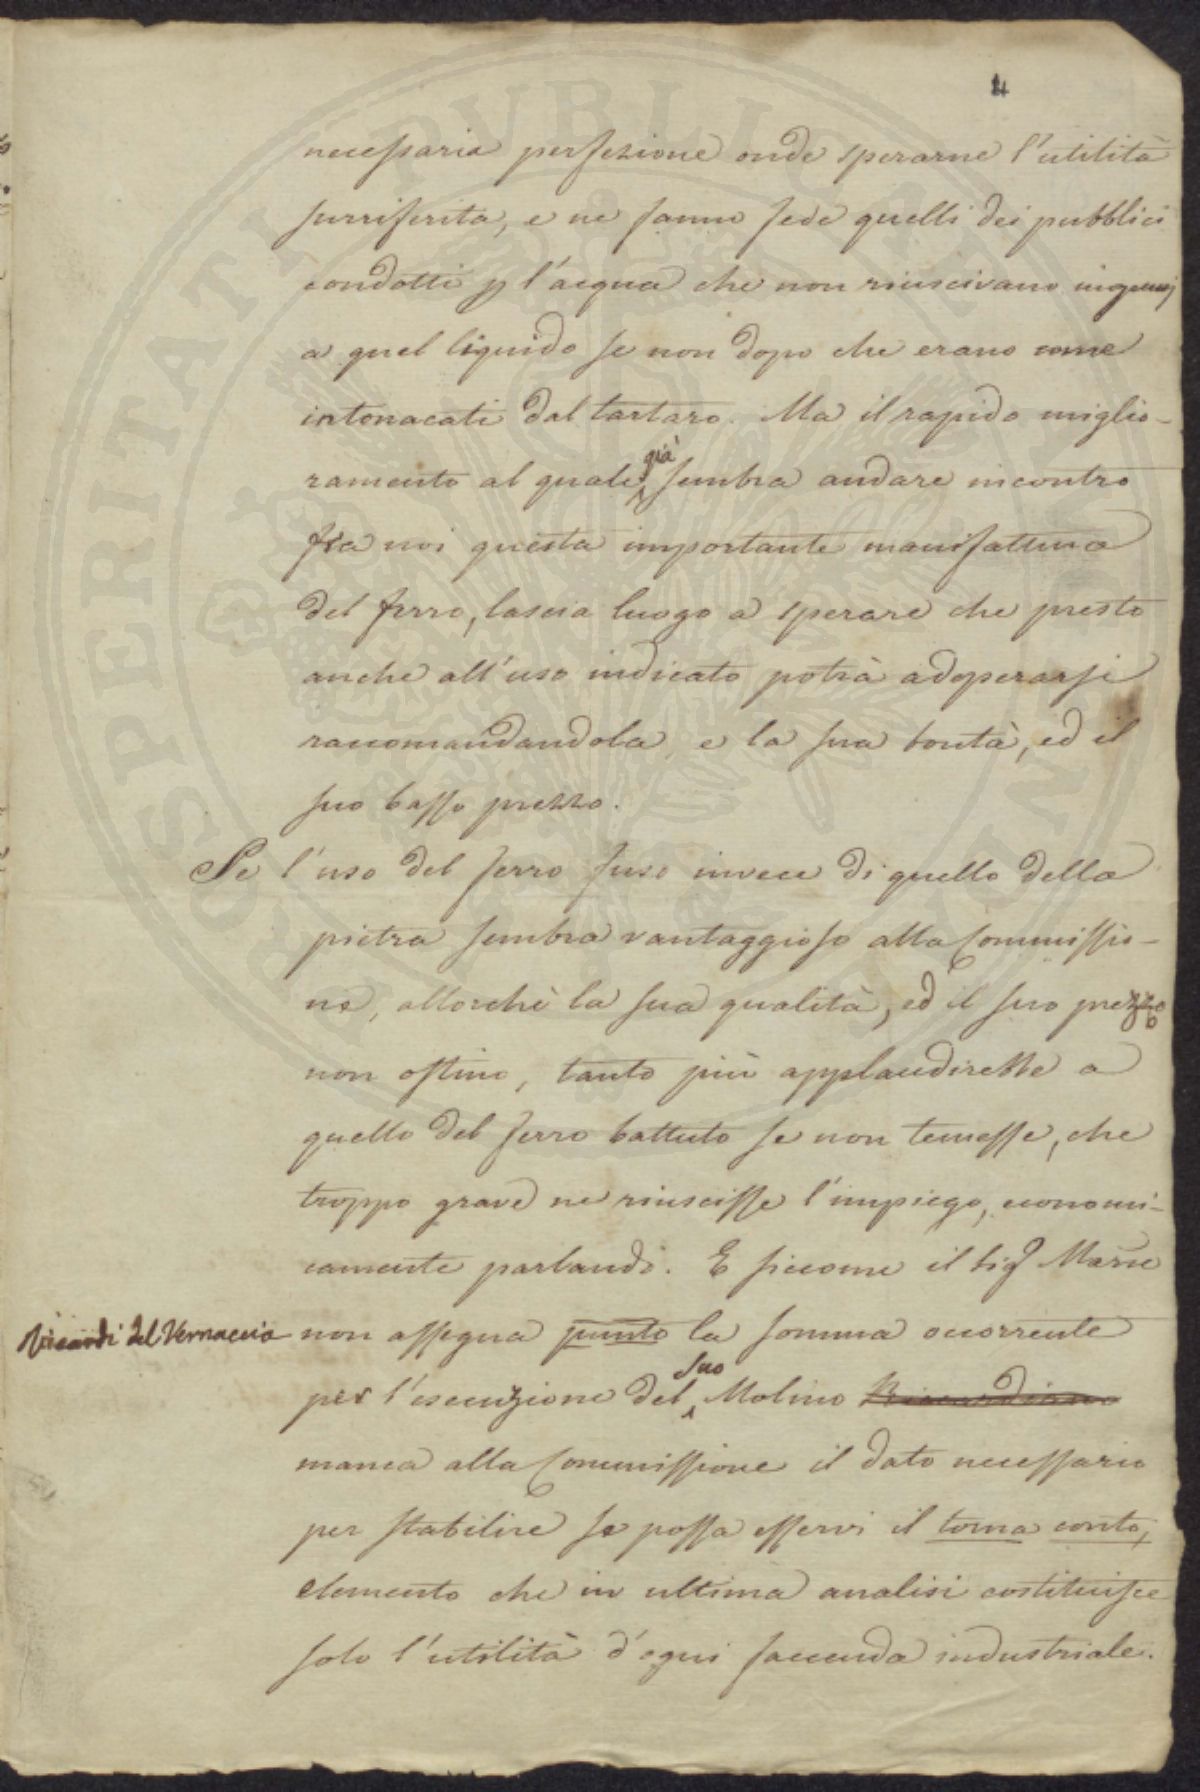 4
necessaria perfezione onde sperarne l'utilità
surriferita, e ne fanno fede quelli dei pubblici
condotti p l'acqua che non riuscivano
a quel liquido se non dopo che erano come
intonacati dal tartaro. Ma il rapido miglio-
ramento al quale già sembra andare incontro
fra noi questa importante manifattura
del ferro, lascia luogo a sperare che presto
anche all'uso indicato potrà adoperarsi
raccomandandola e la sua bontà, ed il
suo basso prezzo.
Se l'uso del ferro fuso invece di quello della
pietra sembra vantaggioso alla Commissio-
ne, allorchè la sua qualità, ed il suo prezzo
non ostino, tanto più applaudirebbe a
quello del ferro battuto se non temesse, che
troppo grave ne riuscisse l'impiego, economi-
camente parlando. E siccome il Sig Marse
Riccardi del Vernaccia non assegna punto la somma occorrente
per l'esecuzione del suo Molino Riccardiano
manca alla Commissione il dato necessario
per stabilire se possa esservi il torna conto,
elemento che in ultima analisi costituisce
solo l'utilità d'ogni faccenda industriale.
PROSPERITATI PVBLICAE